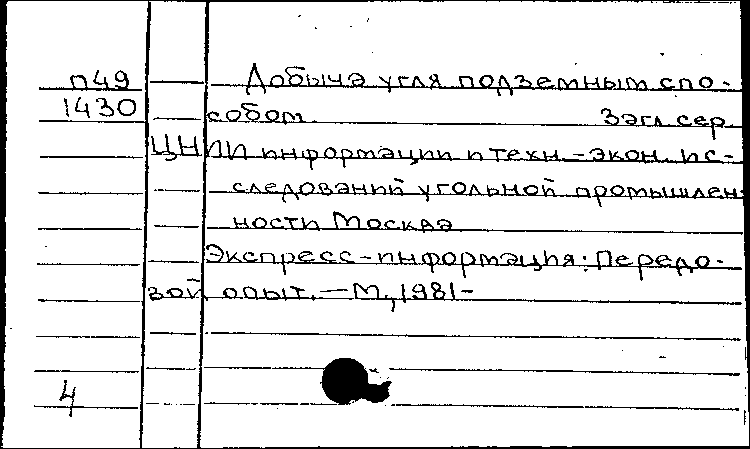 п49
1430
Добыча угля подземным спо-
собом. Загл. сер.
ЦНИИ информации и техн.-экон. ис-
следований угольной промышлен-
ности Москва
Экспресс-информация: Передо-
вой опыт. — М., 1981-
4